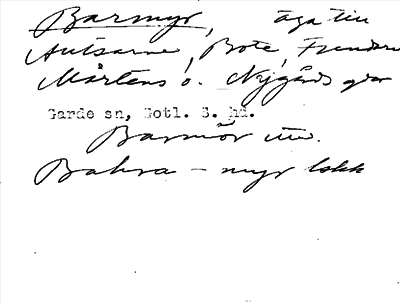 Barmyr, äga till
Autsarve, Bote, Fremdarve
Mårtens o. Nygårds gdar
Garde sn, Gotl. S. hd.
Barmör uu.
Bahra – myr lokk